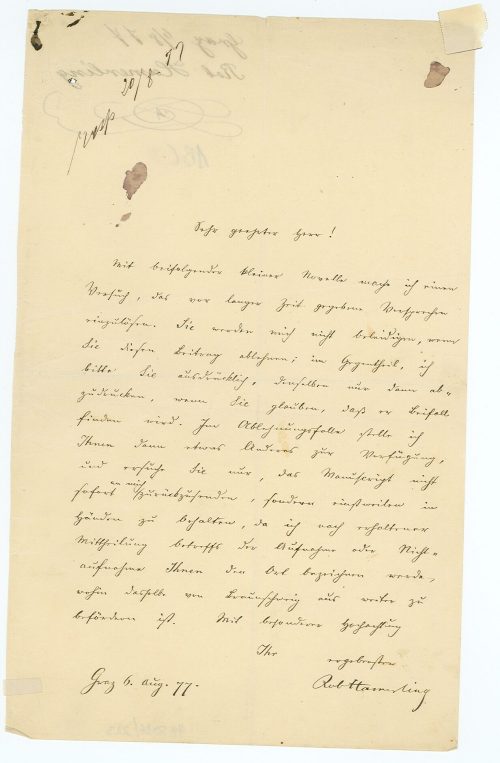 20/8 77
Sehr geehrter Herr!
Mit beifolgender kleiner Novelle mache ich einen
Versuch, das vor langer Zeit gegebene Versprechen
einzulösen. Sie werden mich nicht beleidigen, wenn
Sie diesen Beitrag ablehnen; im Gegentheil, ich
bitte Sie ausdrücklich, denselben nur dann ab-
zudrucken, wenn Sie glauben, daß er Beifall
finden wird. Im Ablehnungsfalle stelle ich
Ihnen dann etwas Anderes zur Verfügung,
und ersuche Sie nur, das Manuscript nicht
sofort an mich zurückzusenden, sondern einstweilen in
Händen zu behalten, da ich nach erhaltener
Mittheilung betreffs der Aufnahme oder Nicht-
aufnahme Ihnen den Ort bezeichnen werde,
wohin dasselbe von Braunschweig aus weiter zu
befördern ist. Mit besonderer Hochachtung
Ihr ergebenster
Graz 6. Aug. 77. Rob Hamerling